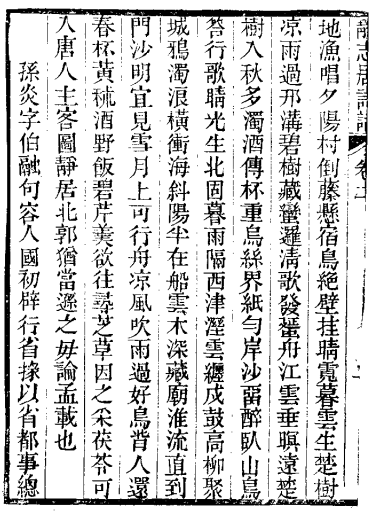 靜志居詩話 卷二
地漁唱夕陽村倒藤懸宿鳥絕壁挂晴霓暮雲生楚樹
凉雨過邗溝碧樹藏蠻邏淸歌發蜑舟江雲垂暝遠楚
樹入秋多濁酒傳杯重烏絲界紙勻岸沙留醉臥山鳥
答行歌睛光生北固暮雨隔西津溼雲纏戍鼓高柳聚
城鴉濁浪橫衝海斜陽半在船雲木深藏廟淮流直到
門沙明宜見雪月上可行舟凉風吹雨過好鳥背人還
春杯黃秫酒野飯碧芹羹欲往尋芝草因之采茯苓可
入唐人主客圖靜居北郭猶當遜之毋論孟載也
孫炎字伯融句容人國初辟行省掾以省都事總